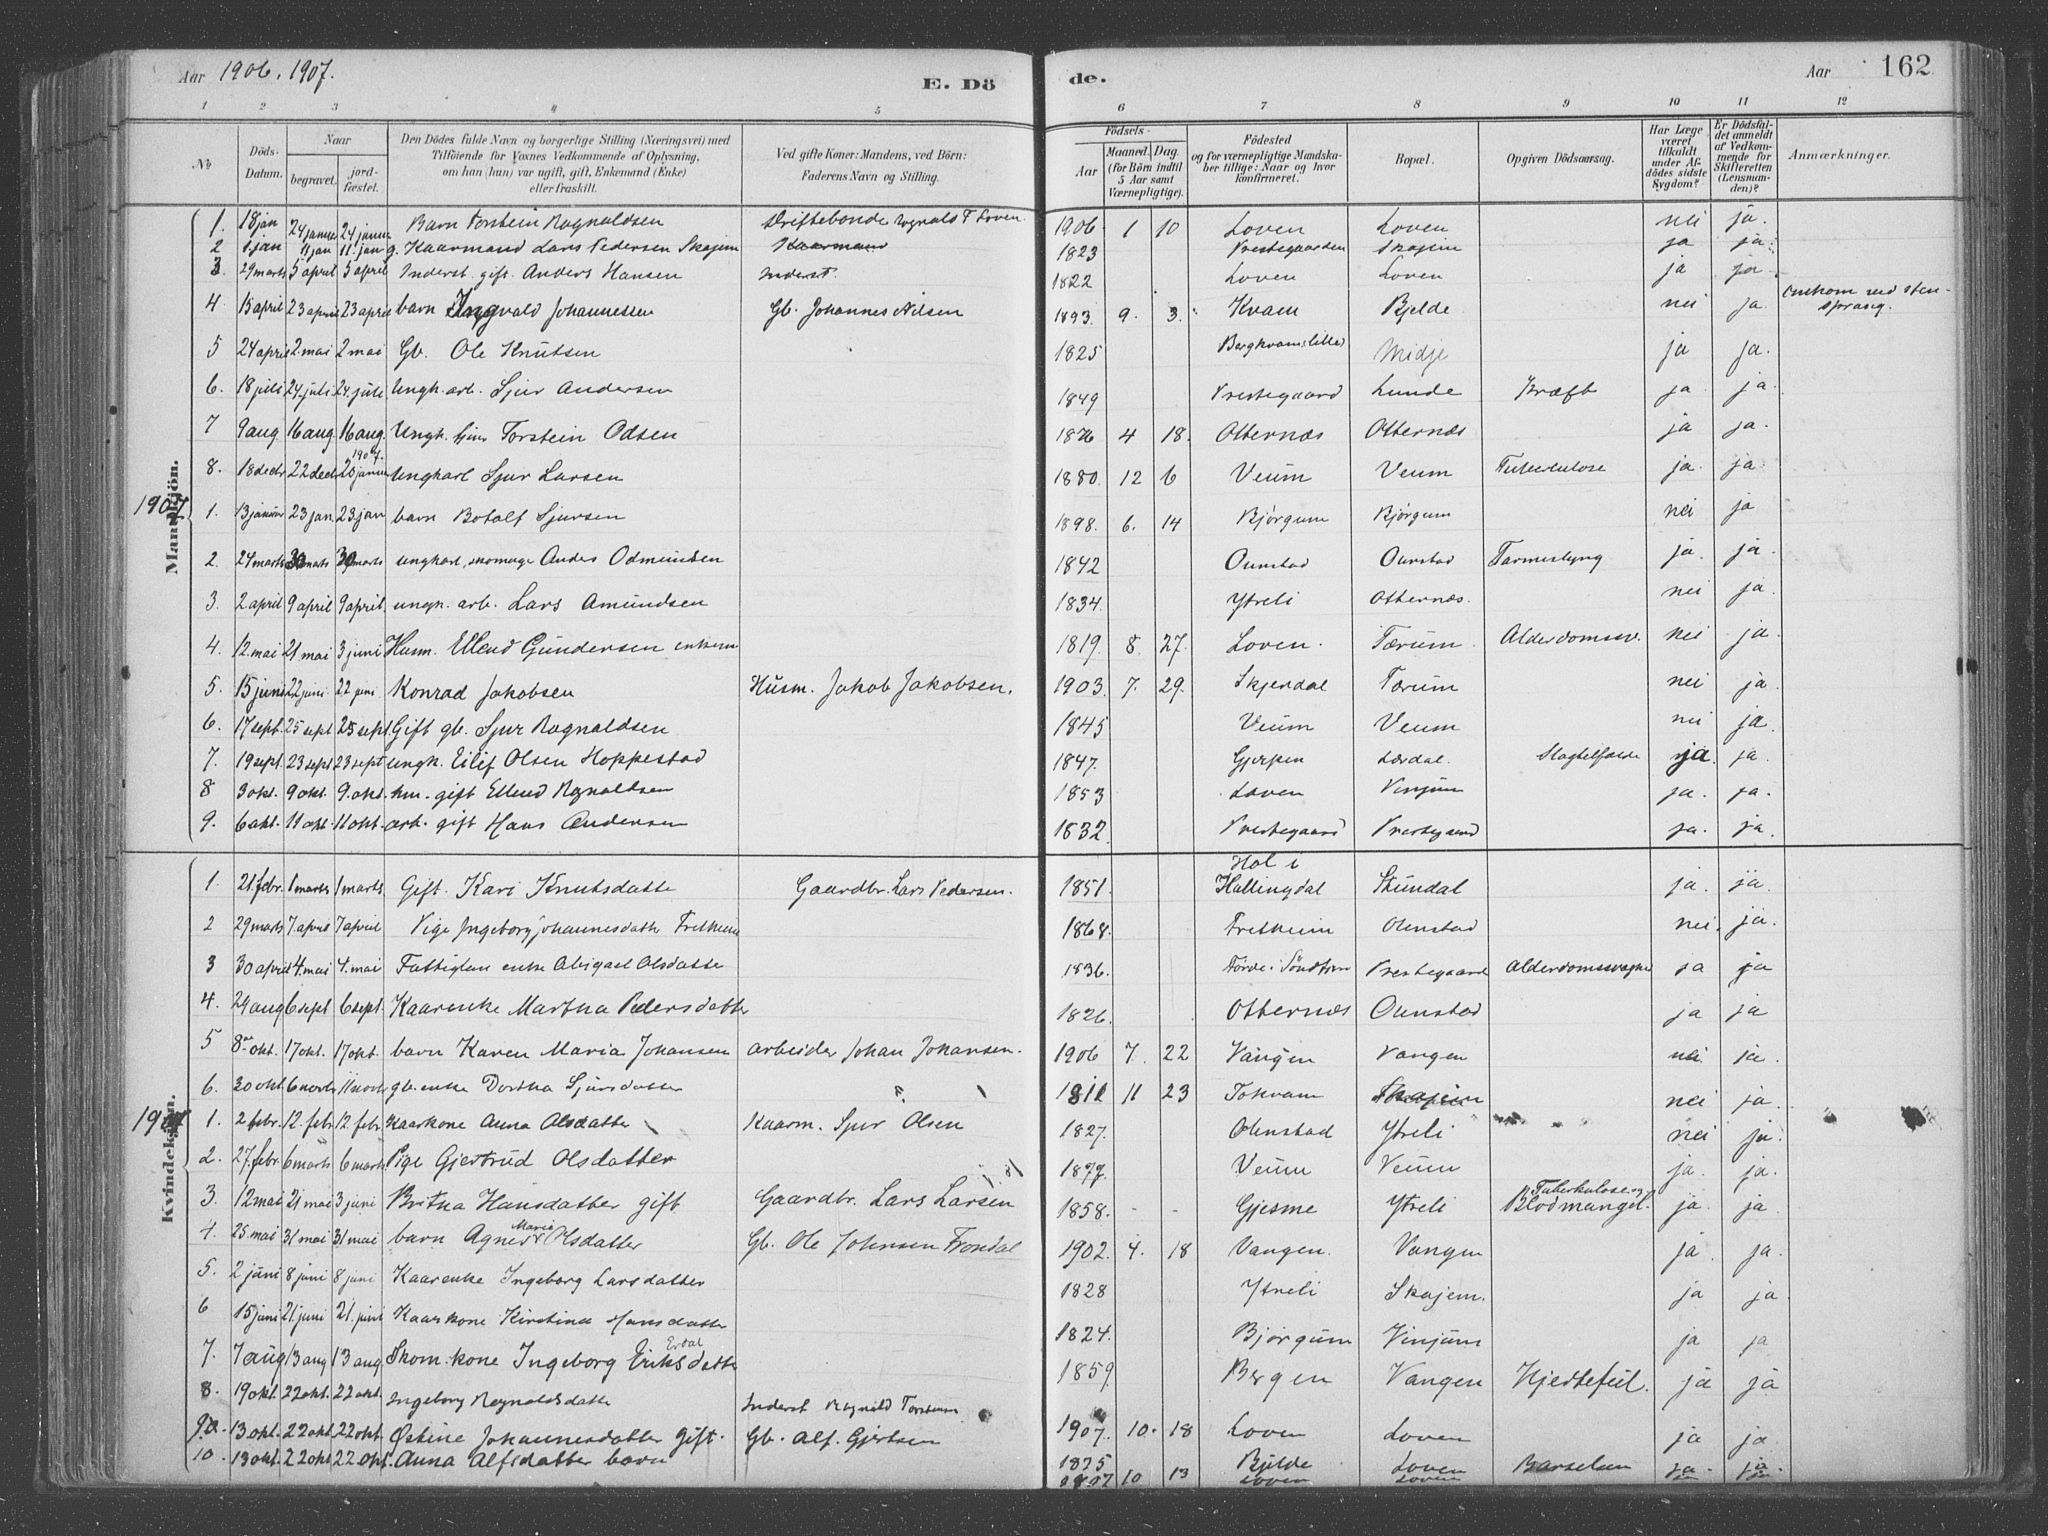 Aar 1906. 1907.
E. Dö
de.
Aar
162
1 2 3 4 5 6 7 8 9 10 11 12
№
Döds-Datum.
Naar
begravet.
jord-fæstet.
Den Dödes fulde Navn og borgerlige Stilling (Næringsvei) med Tilföiende for Voxnes Vedkommende af Oplysning, om han (hun) var ugift, gift, Enkemand (Enke) eller fraskilt.
Ved gifte Koner: Mandens, ved Börn: Faderens Navn og Stilling.
Födsels-
Aar
Maaned. Dag. (for Börn indtil 5 Aar samt Værnepligtige).
Födested og for værnepligtige Mandska-ber tillige: Naar og hvor konfirmeret.
Bopæl.
Opgiven Dödsaarsag.
Har Læge været tilkaldt under Af-dödes sidste Sygdom?
Er Dödsfal-det anmeldt af Vedkom-mende for Skifteretten (Lensman-den)?
Anmærkninger.
Mandkjön.
1. 18 jan 24 januar 24 januar Barn Torstein Ragnaldsen Driftebonde Rognald T Loven 1906 1 10 Loven Loven nei ja.
2 1 jan 11 jan 11. jan g. Kaarmand Lars Pedersen Skajem Kaarmand 1823 Prestegaarden Skajem ja ja.
3. 29 marts 5 april 5 april Inderst. gift. Anders Hansen Inderst. 1822 Loven Loven ja ja.
4 15 april 23 april 23 april barn Ingvald Johannessen Gb. Johannes Nilsen 1893. 9. 3. Kvam Bjelde nei ja omkom ved sten-sprang.
5 24 april 2. mai 2 mai Gb. Ole Knutsen 1825 Bergkvam (lille) Midje ja ja.
6. 18 juli 24. juli 24. juli Ungk. arb. Sjur Andersen 1849 Prestegaard Lunde Kræft ja. ja.
7 9 aug 16 aug 16 aug. Ungk. Torstein Odsen 1876 4 18. Otternæs Otternæs ja ja.
8. 18 decbr 22 decb 1907. 20 januar Ungkarl Sjur Larsen 1880. 12 6 Veum Veum Tuberculose ja. ja.
1907
1. 13 januar 23 jan. 23. jan barn Botolf Sjursen 1898. 6. 14 Bjørgum Bjørgum nei ja
2. 24 marts 30 marts 30 marts ungkarl, skomager Anders Odmundsen 1842 Ounstad Ounstad Tarmeslyng ja. ja.
3. 2 april 9 april 9 april. ungk. arb. Lars Amundsen 1834. Ytreli Otternæs. nei ja.
4. 12. mai 21 mai 3 juni Husm. Ellend Gundersen enkem 1819. 8. 27. Loven. Tærum. Alderdomssv. nei ja.
5. 15 juni 22 juni 22 juni Konrad Jakobsen Husm. Jakob Jakobsen. 1903. 7. 29. Skjerdal Tærum nei ja.
6. 17 sept. 25 sept 25 sept. Gift gb. Sjur Ragnaldsen 1845 Veum Veum nei ja.
7. 19 sept. 23 sept 23 sept ungk. Eilif Olsen Hoppestad 1847. Gjerpen Lærdal. Slagtilfælde ja. ja.
8 3 okt. 9 okt. 9. okt. hm. gift Ellend Rognaldsen 1853 Loven Vinjum ja. ja.
9. 6 okt. 11 okt. 11 okt. arb. gift Hans Andersen 1832. Prestegaard Prestegaard ja. ja.
Kvindekjön.
1. 21. febr. 1 marts 1 marts. Gift. Kari Knutsdatter Gaardbr. Lars Pedersen. 1851. Hol i Hallingdal Stundal ja. ja.
2 29 marts 7. april 7 april Pige Ingeborg Johannesdatter Fretheim 1868. Fretheim Ounstad nei. ja.
3 30 april 4. mai 4. mai Fattiglem enke Abigael Olsdatter 1836. Førde i Søndfjord Prestegaard Alderdomssvaghed ja ja
4. 29 aug 6 sept 6 sept. Kaarenke Martha Pedersdatter 1826. Otternæs Ounstad ja ja
5 8 okt. 17 okt. 17 okt. barn Karen Maria Johansen Arbeider Johan Johansen. 1906 7. 22 Vangen Vangen nei ja.
6. 30 okt. 6 novbr 11 novb gb. enke Dortha Sjursdatter 1811 11 23 Tokvam Skajem nei ja.
1907
1. 2 febr. 12. febr 12 febr Kaarkone Anna Olsdatter Kaarm. Sjur Olsen 1827. Ounstad Ytreli nei ja.
2. 27. febr. 6 marts 6 marts Pige Gjertrud Olsdatter 1877. Veum Veum ja. ja.
3. 12 mai 21 mai 3 juni Britha Hansdatter gift Gaardbr. Lars Larsen 1858. - - Gjesme Ytreli Tuberkulose og Blodmangel. ja. ja.
4. 25. mai 31 mai 31 mai barn Agnes Marie Olsdatter Gb. Ole Johnsen Frondal 1902. 4. 18 Vangen. Vangen ja. ja.
5. 2 juni 8 juni 8 juni Kaarenke Ingeborg Larsdatter 1828 Ytreli Skajem. ja ja.
6 15 juni 21. juni 21. juni Kaarkone Kirstina Hansdatter 1824. Bjørgum Vinjum ja ja
7. 7 aug 13 aug 13 aug. Skom. kone Ingeborg Eriksdatter Erdal 1859 Bergen Vangen Hjertefeil. ja ja
8. 19 okt. 22 okt. 22 okt. Ingeborg Rognaldsdatter Inderst Rognald Torsteinsen 1907. 10. 18 Loven Loven ja ja
9. 13 okt. 22 okt 22 okt. Østine Johannesdatter gift. Gb. Alf. Gjertsen 1875 Bjelde Loven Barselseng ja. ja.
10. 13 okt. 22 okt 22 okt. Anna Alfsdatter barn 1907 10 13 Loven Loven